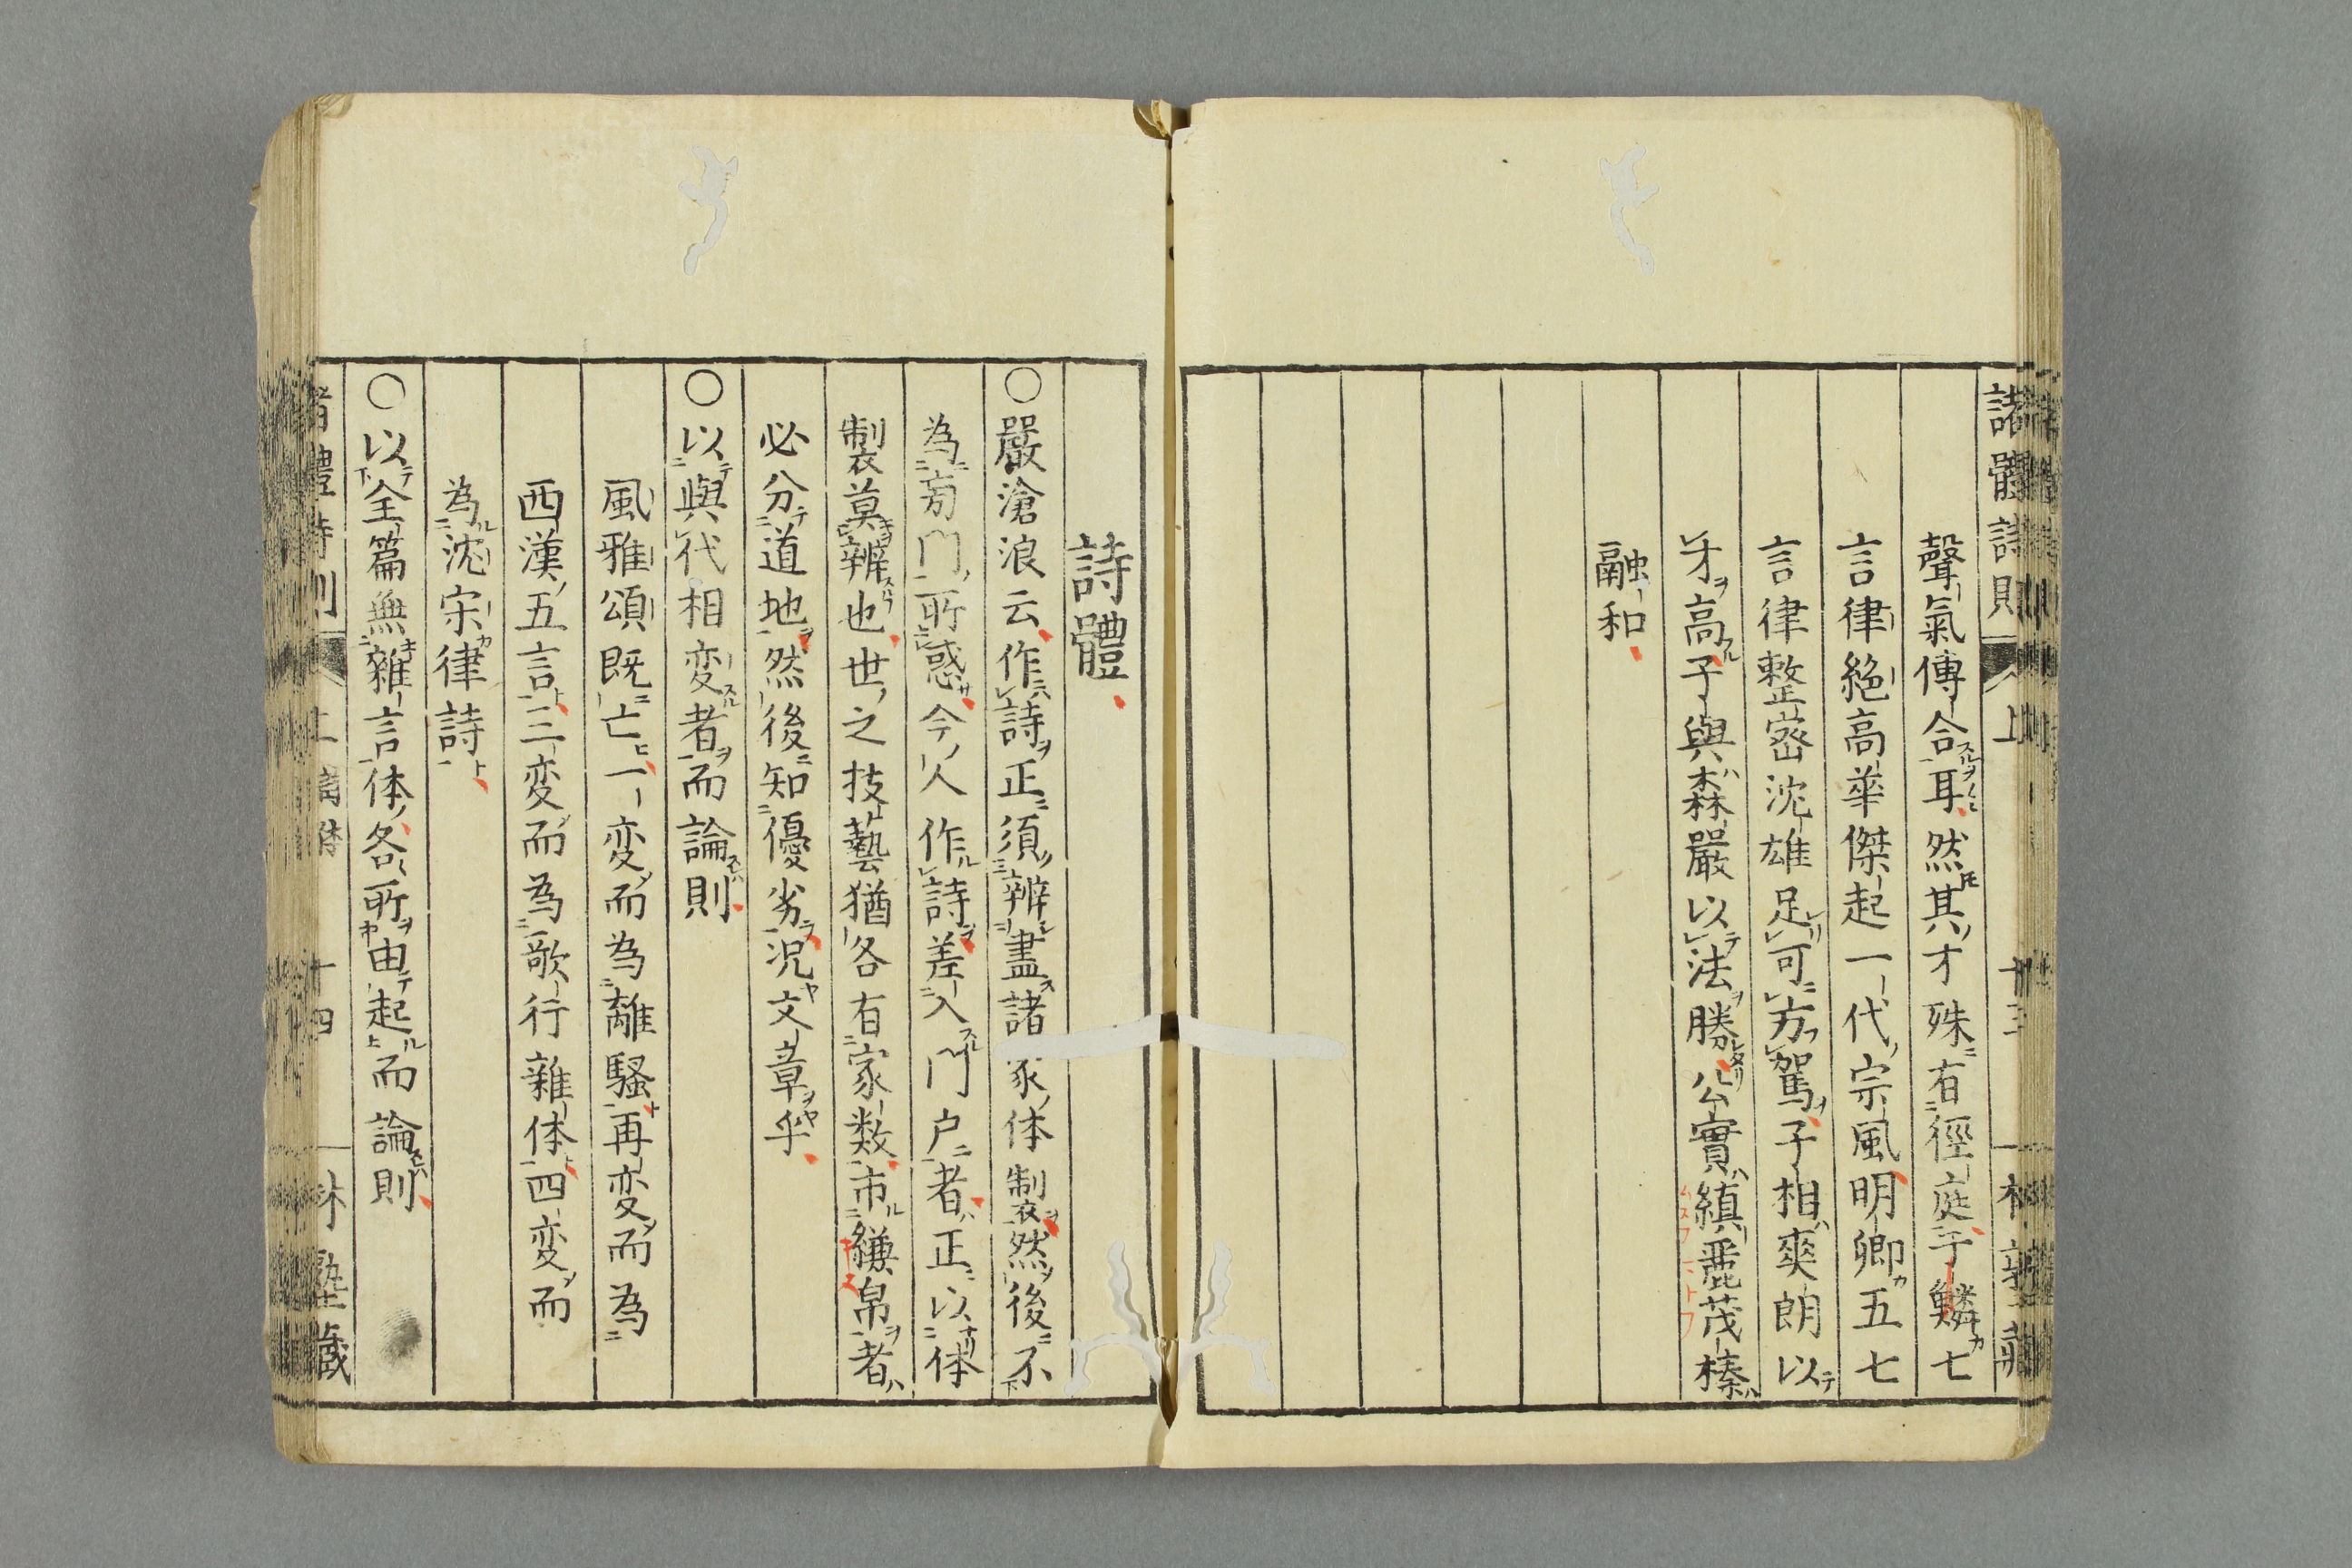 諸體詩則 上
聲氣傳合耳然其才殊有徑庭于鱗七
言律絕高華傑起一代宗風明卿五七
言律整密沈雄足可方駕子相爽朗以
才高子與森嚴以法勝公實縝麗茂榛
融和
詩體
○嚴滄浪云作詩正須辨盡諸家体製然後不
為旁門所惑今人作詩差入門戶者正以体
製莫辨也世之技藝猶各有家数市縑帛者
必分道地然後知優劣況文章乎
○以與代相変者而論則
風雅頌既亡一変而為離騷再変而為
西漢五言三変而為歌行雜体四変而
為沈宋律詩
○以全篇無雜言体各所由起而論則
十四